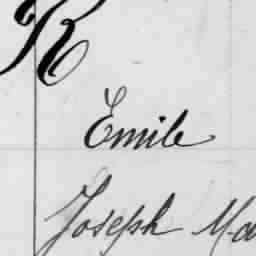 R
Emile
Joseph Ma